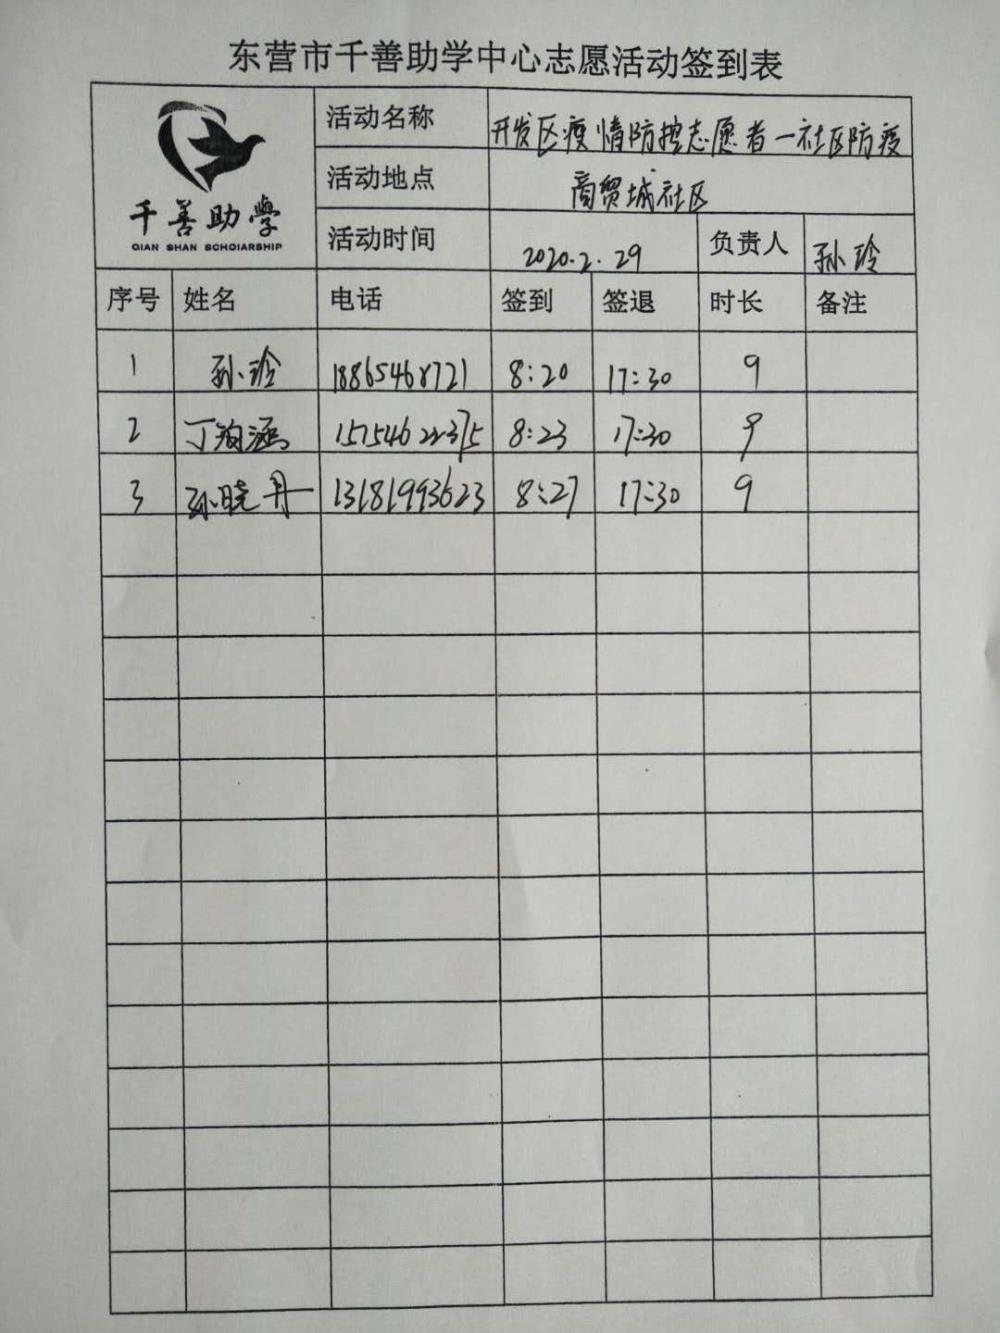 东营市千善助学中心志愿活动签到表
千善助学
QIAN SHAN SCHOIARSHIP
活动名称 开发区疫情防控志愿者一社区防疫
活动地点 商贸城社区
活动时间 2020.2.29 负责人 孙玲
序号 姓名 电话 签到 签退 时长 备注
1 孙玲 18865468721 8:20 17:30 9
2 丁洵涵 15754622375 8:23 17:30 9
3 孙晓丹 13181993623 8:27 17:30 9